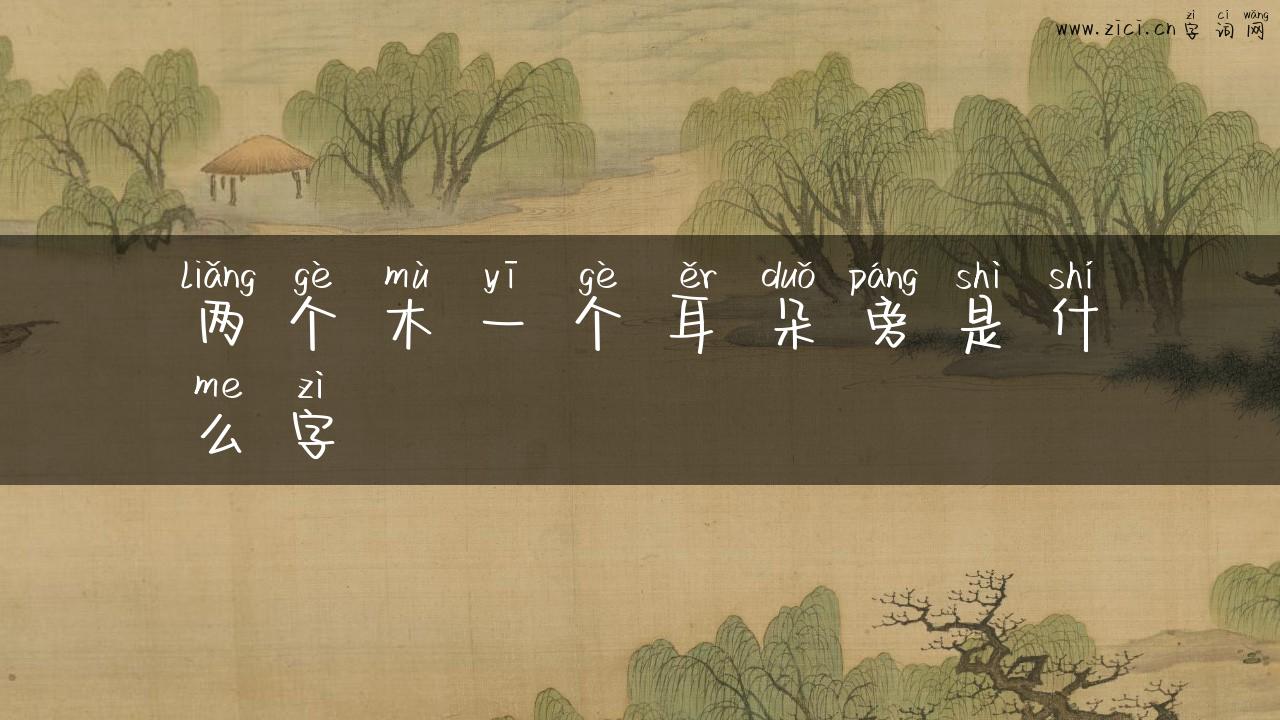 zì cí wǎng
www.zici.cn 字词网
liǎng gè mù yī gè ěr duǒ páng shì shí
两个木一个耳朵旁是什
me zì
么字